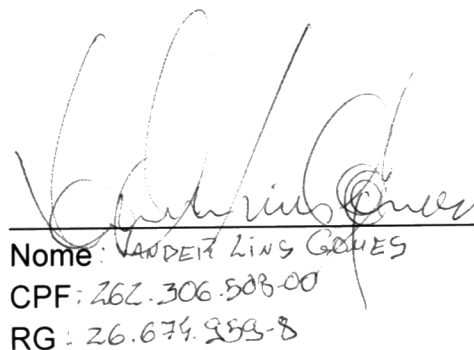 Nome: VANDER LINS GOMES
CPF: 262.306.508-00
RG: 26.674.959-8